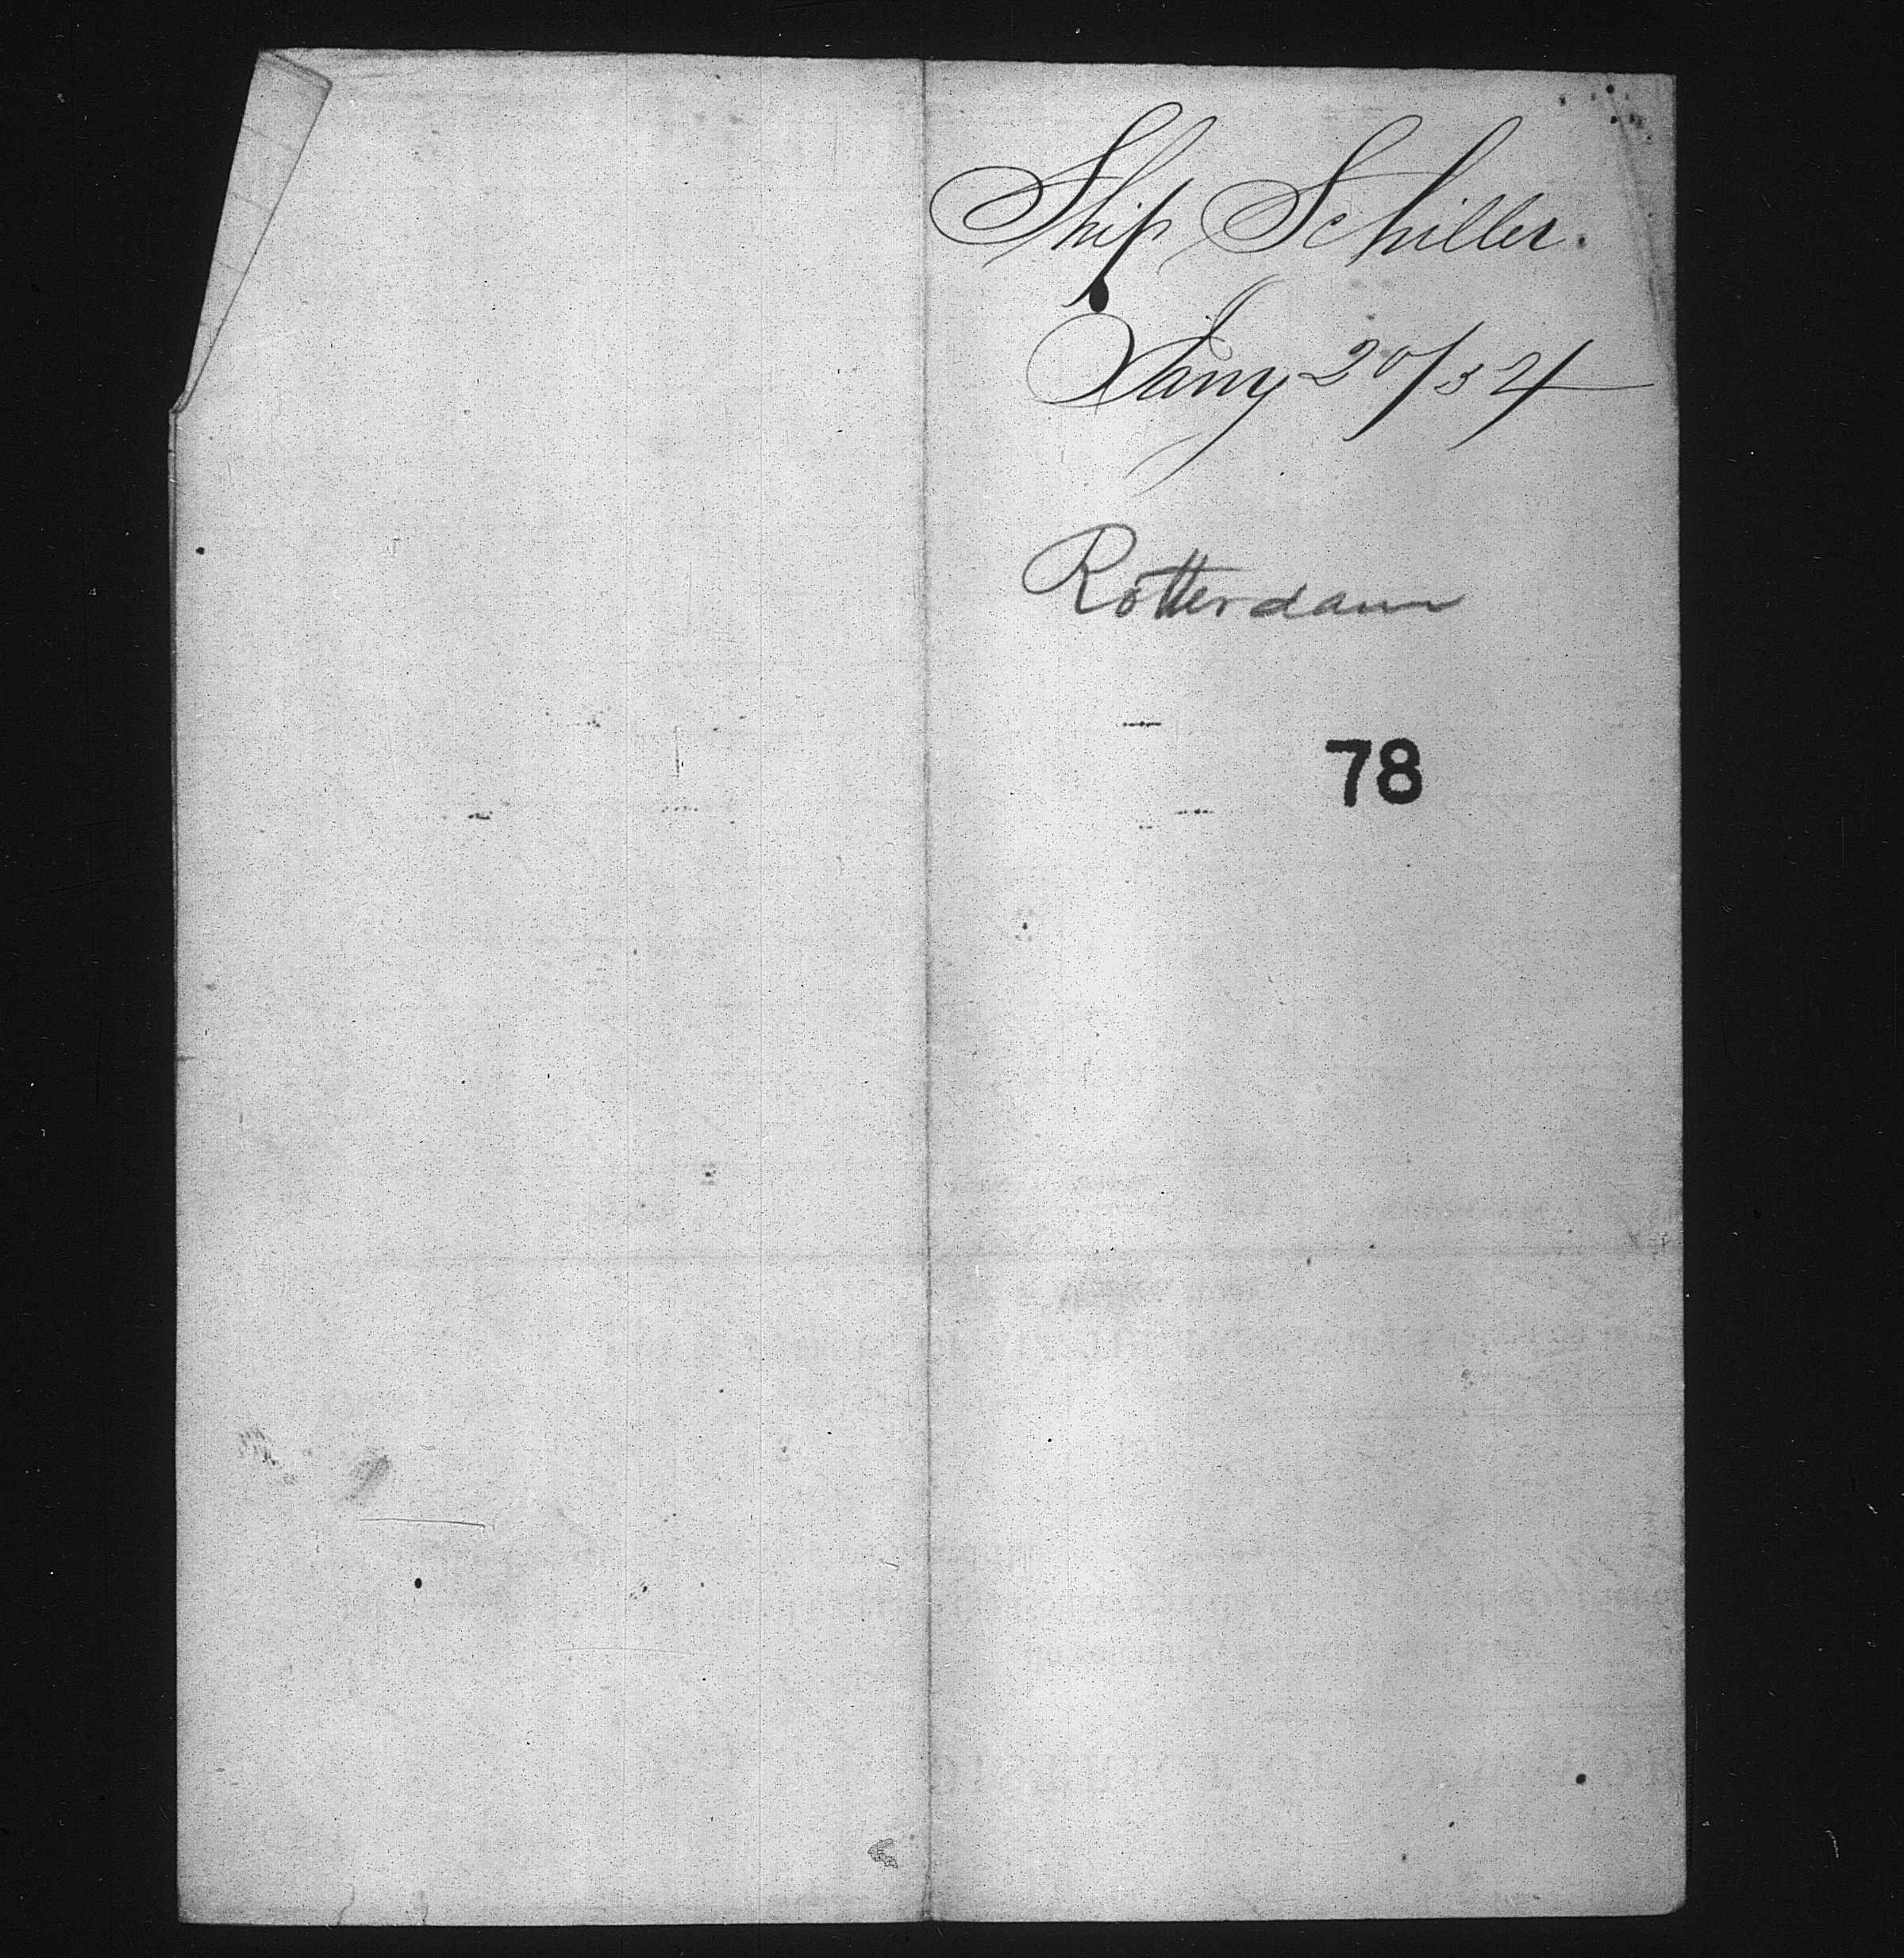 Ship Schiller.
Jany 20/54
Rotterdam
78